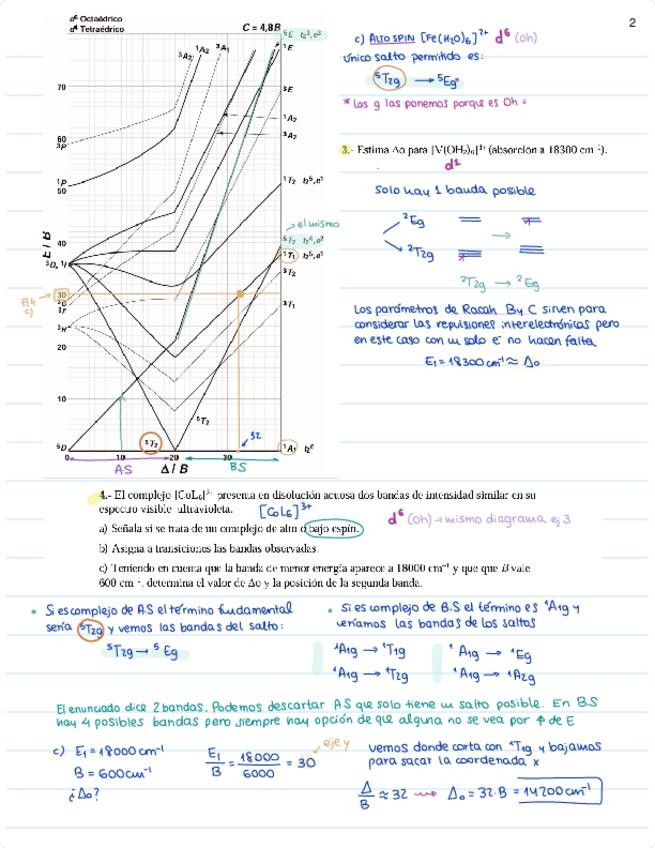 2
d⁶ Octaédrico
d⁴ Tetraédrico
C = 4,8B
⁵E t₂³,e³
¹E
³A₂
¹A₂
³A₁
³E
¹A₂
³A₂
¹T₂ t₂⁵,e¹
el mismo
⁵T₂ t₂⁴,e²
¹T₁ t₂⁵,e¹
³T₂
³T₁
⁵T₂
⁵T₂
32
¹A₁ t₂⁶
E / B
70
60
³P
¹P
50
40
⁵D, ¹I
30
Ej 4
c)
³G
³F
³H
20
10
⁵D
0
10
20
30
Δ / B
AS
BS
c) ALTO SPIN [Fe(H₂O)₆]²⁺ d⁶ (oh)
único salto permitido es:
⁵T₂g → ⁵Eg*
* las g las ponemos porque es Oh
3.- Estima Δo para [V(OH₂)₆]³⁺ (absorción a 18300 cm⁻¹).
d¹
Solo hay 1 banda posible
²Eg
²T₂g
²T₂g → ²Eg
Los parámetros de Racah B y C sirven para
considerar las repulsiones interelectrónicas pero
en este caso con un solo e⁻ no hacen falta
E₁ = 18300 cm⁻¹ ≈ Δo
4.- El complejo [CoL₆]³⁺ presenta en disolución acuosa dos bandas de intensidad similar en su
espectro visible ultravioleta. [CoL₆]³⁺
d⁶ (oh) → mismo diagrama ej 3
a) Señala si se trata de un complejo de alto o bajo espín.
b) Asigna a transiciones las bandas observadas.
c) Teniendo en cuenta que la banda de menor energía aparece a 18000 cm⁻¹ y que que B vale
600 cm⁻¹, determina el valor de Δo y la posición de la segunda banda.
• Si es complejo de AS el término fundamental
sería ⁵T₂g y vemos las bandas del salto:
⁵T₂g → ⁵Eg
• Si es complejo de B.S el término es ¹A₁g y
veríamos las bandas de los saltos
¹A₁g → ¹T₁g
¹A₁g → ¹Eg
¹A₁g → ¹T₂g
¹A₁g → ¹A₂g
El enunciado dice 2 bandas. Podemos descartar AS que solo tiene un salto posible. En BS
hay 4 posibles bandas pero siempre hay opción de que alguna no se vea por ↑ de E
c) E₁ = 18000 cm⁻¹
B = 600 cm⁻¹
¿Δo?
E₁/B = 18000/6000 = 30
eje y
vemos donde corta con ¹T₁g y bajamos
para sacar la coordenada x
Δ/B ≈ 32 → Δo = 32·B = 14200 cm⁻¹